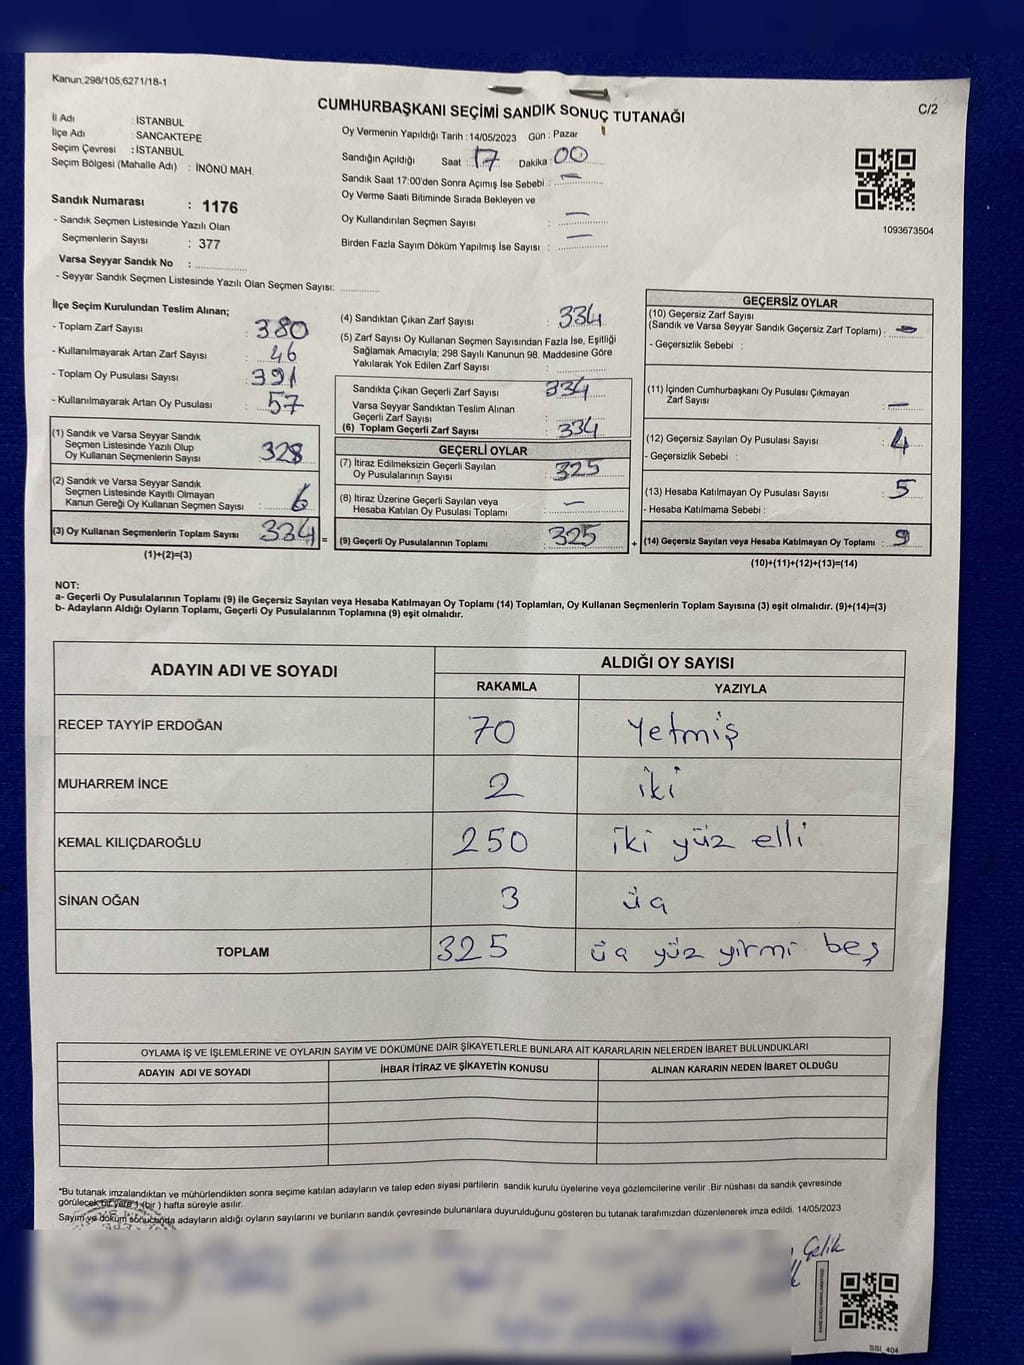 Kanun,298/105,6271/18-1
C/2
CUMHURBAŞKANI SEÇİMİ SANDIK SONUÇ TUTANAĞI
İl Adı : İSTANBUL
İlçe Adı : SANCAKTEPE
Seçim Çevresi : İSTANBUL
Seçim Bölgesi (Mahalle Adı) : İNÖNÜ MAH.
Sandık Numarası : 1176
- Sandık Seçmen Listesinde Yazılı Olan
Seçmenlerin Sayısı : 377
Varsa Seyyar Sandık No :
- Seyyar Sandık Seçmen Listesinde Yazılı Olan Seçmen Sayısı:
Oy Vermenin Yapıldığı Tarih : 14/05/2023 Gün : Pazar
Sandığın Açıldığı Saat : 17 Dakika : 00
Sandık Saat 17:00'den Sonra Açımış İse Sebebi : —
Oy Verme Saati Bitiminde Sırada Bekleyen ve
Oy Kullandırılan Seçmen Sayısı : —
Birden Fazla Sayım Döküm Yapılmış İse Sayısı : —
1093673504
İlçe Seçim Kurulundan Teslim Alınan;
- Toplam Zarf Sayısı : 380
- Kullanılmayarak Artan Zarf Sayısı : 46
- Toplam Oy Pusulası Sayısı : 391
- Kullanılmayarak Artan Oy Pusulası : 57
(1) Sandık ve Varsa Seyyar Sandık
Seçmen Listesinde Yazılı Olup
Oy Kullanan Seçmenlerin Sayısı : 328
(2) Sandık ve Varsa Seyyar Sandık
Seçmen Listesinde Kayıtlı Olmayan
Kanun Gereği Oy Kullanan Seçmen Sayısı : 6
(3) Oy Kullanan Seçmenlerin Toplam Sayısı : 334 =
(1)+(2)=(3)
(4) Sandıktan Çıkan Zarf Sayısı : 334
(5) Zarf Sayısı Oy Kullanan Seçmen Sayısından Fazla İse, Eşitliği
Sağlamak Amacıyla; 298 Sayılı Kanunun 98. Maddesine Göre
Yakılarak Yok Edilen Zarf Sayısı :
Sandıkta Çıkan Geçerli Zarf Sayısı : 334
Varsa Seyyar Sandıktan Teslim Alınan
Geçerli Zarf Sayısı :
(6) Toplam Geçerli Zarf Sayısı : 334
GEÇERLİ OYLAR
(7) İtiraz Edilmeksizin Geçerli Sayılan
Oy Pusulalarının Sayısı : 325
(8) İtiraz Üzerine Geçerli Sayılan veya
Hesaba Katılan Oy Pusulası Toplamı : —
(9) Geçerli Oy Pusulalarının Toplamı : 325 +
GEÇERSİZ OYLAR
(10) Geçersiz Zarf Sayısı
(Sandık ve Varsa Seyyar Sandık Geçersiz Zarf Toplamı) : —
- Geçersizlik Sebebi :
(11) İçinden Cumhurbaşkanı Oy Pusulası Çıkmayan
Zarf Sayısı : —
(12) Geçersiz Sayılan Oy Pusulası Sayısı : 4
- Geçersizlik Sebebi :
(13) Hesaba Katılmayan Oy Pusulası Sayısı : 5
- Hesaba Katılmama Sebebi :
(14) Geçersiz Sayılan veya Hesaba Katılmayan Oy Toplamı : 9
(10)+(11)+(12)+(13)=(14)
NOT:
a- Geçerli Oy Pusulalarının Toplamı (9) ile Geçersiz Sayılan veya Hesaba Katılmayan Oy Toplamı (14) Toplamları, Oy Kullanan Seçmenlerin Toplam Sayısına (3) eşit olmalıdır. (9)+(14)=(3)
b- Adayların Aldığı Oyların Toplamı, Geçerli Oy Pusulalarının Toplamına (9) eşit olmalıdır.
ADAYIN ADI VE SOYADI ALDIĞI OY SAYISI
RAKAMLA YAZIYLA
RECEP TAYYİP ERDOĞAN 70 Yetmiş
MUHARREM İNCE 2 iki
KEMAL KILIÇDAROĞLU 250 iki yüz elli
SİNAN OĞAN 3 üç
TOPLAM 325 üç yüz yirmi beş
OYLAMA İŞ VE İŞLEMLERİNE VE OYLARIN SAYIM VE DÖKÜMÜNE DAİR ŞİKAYETLERLE BUNLARA AİT KARARLARIN NELERDEN İBARET BULUNDUKLARI
ADAYIN ADI VE SOYADI İHBAR İTİRAZ VE ŞİKAYETİN KONUSU ALINAN KARARIN NEDEN İBARET OLDUĞU
*Bu tutanak imzalandıktan ve mühürlendikten sonra seçime katılan adayların ve talep eden siyasi partilerin sandık kurulu üyelerine veya gözlemcilerine verilir .Bir nüshası da sandık çevresinde
görülecek bir yere 1 (bir ) hafta süreyle asılır.
Sayım ve döküm sonucunda adayların aldığı oyların sayılarını ve bunların sandık çevresinde bulunanlara duyurulduğunu gösteren bu tutanak tarafımızdan düzenlenerek imza edildi. 14/05/2023
Çelik
SSI_404